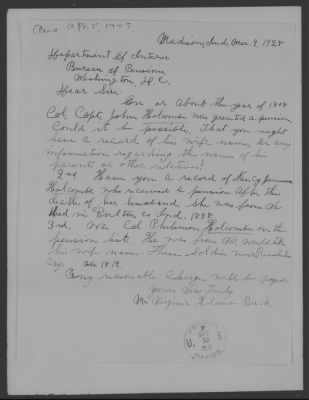 Madison, Ind, Mar. 9, 1928
Department of Interior
Bureau of Pension
Washington, D.C.
Dear Sir:
On or about the year of 18
Col, Capt John Holcombe was granted a pension
Could it be possible, that you might
have a record of his wife name or any
information regarding the name of his
parents or other relation?
2nd Have you a record of Nancy
Holcombe who received a pension after the
death of her husband She was from
died in Co Ind. 1838
3rd. Was Col Philemon Holcombe on the
pension list. He was from Va would like
his wife name. These Soldier were Revolution
ary.
Any reasonable charge will be paid
yours Very Truly
Mrs Virginia Holcomb Buck
U. S.